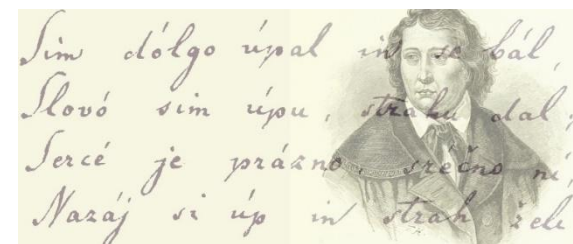 Sim dólgo úpal in se bál,
Slovó sim úpu, strahu dal;
Sercé je prázno, sréčno ní,
Nazáj si úp in strah želí